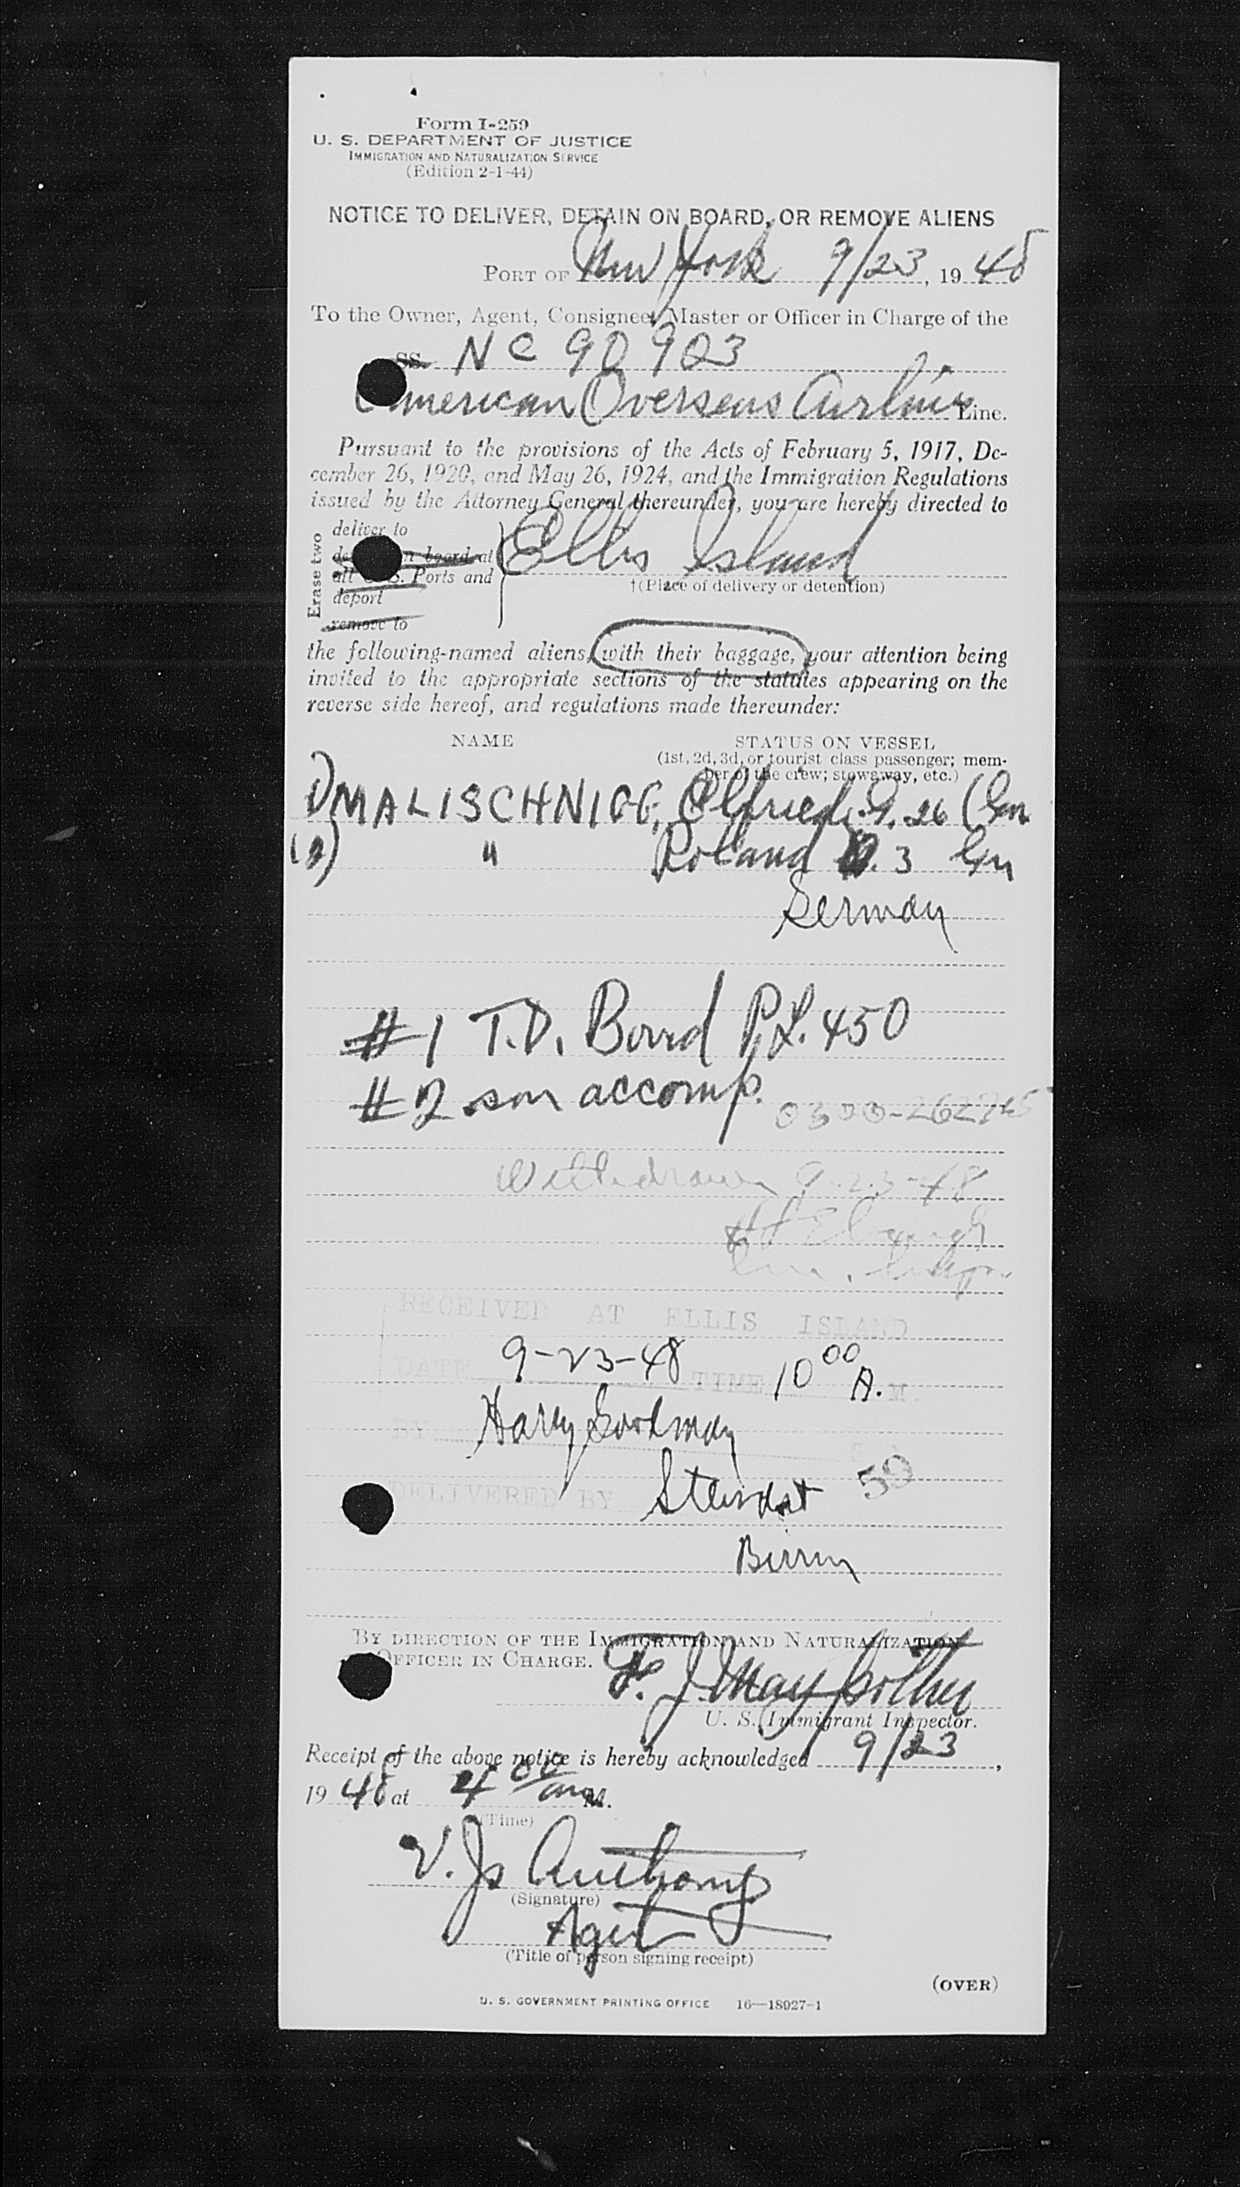 Form I-259
U. S. DEPARTMENT OF JUSTICE
IMMIGRATION AND NATURALIZATION SERVICE
(Edition 2-1-44)
NOTICE TO DELIVER, DETAIN ON BOARD, OR REMOVE ALIENS
PORT OF New York 9/23, 1948
To the Owner, Agent, Consignee, Master or Officer in Charge of the
SS. NC 90903
American Overseas Airlines Line.
Pursuant to the provisions of the Acts of February 5, 1917, De-
cember 26, 1920, and May 26, 1924, and the Immigration Regulations
issued by the Attorney General thereunder, you are hereby directed to
Erase two
deliver to
board at
all U.S. Ports and
deport
remove to
Ellis Island
†(Place of delivery or detention)
the following-named aliens, with their baggage, your attention being
invited to the appropriate sections of the statutes appearing on the
reverse side hereof, and regulations made thereunder:
NAME STATUS ON VESSEL
(1st, 2d, 3d, or tourist class passenger; mem-
ber of the crew; stowaway, etc.)
1) MALISCHNIGG, Elfriede 26
(2) " Roland 3
German
#1 T.D. Board P.L. 450
#2 son accomp.
0300-
Withdrawn 9-23-48
RECEIVED AT ELLIS ISLAND
DATE 9-23-48 TIME 10 00 A. M.
BY Harry Goodman
59
DELIVERED BY
BY DIRECTION OF THE IMMIGRATION AND NATURALIZATION
OFFICER IN CHARGE.
F. J.
U. S. Immigrant Inspector.
Receipt of the above notice is hereby acknowledged 9/23,
1948 at 4 00 am M.
(Time)
V. J. Anthony
(Signature)
Agent
(Title of person signing receipt)
(OVER)
U. S. GOVERNMENT PRINTING OFFICE 16—18027-1